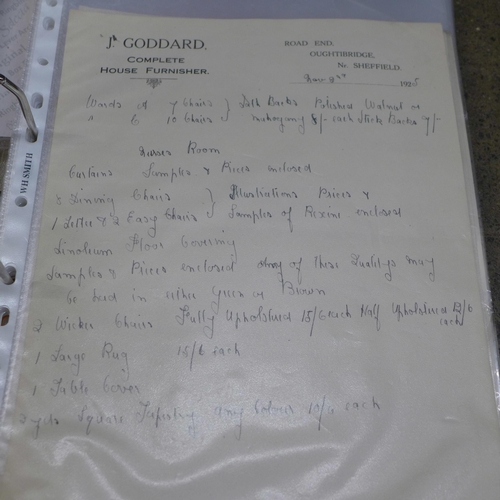 J. GODDARD.
COMPLETE
HOUSE FURNISHER.
ROAD END,
OUGHTIBRIDGE,
Nr. SHEFFIELD.
1925
Wards of 7 Chairs } Lath Backs Polished Walnut or
" 6 10 Chairs } mahogany 8/- each Stick Backs 9/-
Room
Curtains Samples & Prices enclosed
8 Dining Chairs } Illustrations Prices &
1 Settee & 2 Easy Chairs } Samples of Rexine enclosed
Linoleum Floor Covering
Samples & Prices enclosed any of these Qualitys may
be had in either Green or Brown
2 Wicker Chairs Fully Upholstered 15/6 each Half Upholstered 12/6
each
1 Large Rug 15/6 each
1 Table Cover
2 yds Square Tapestry any Colour 10/6 each
WHSMITH